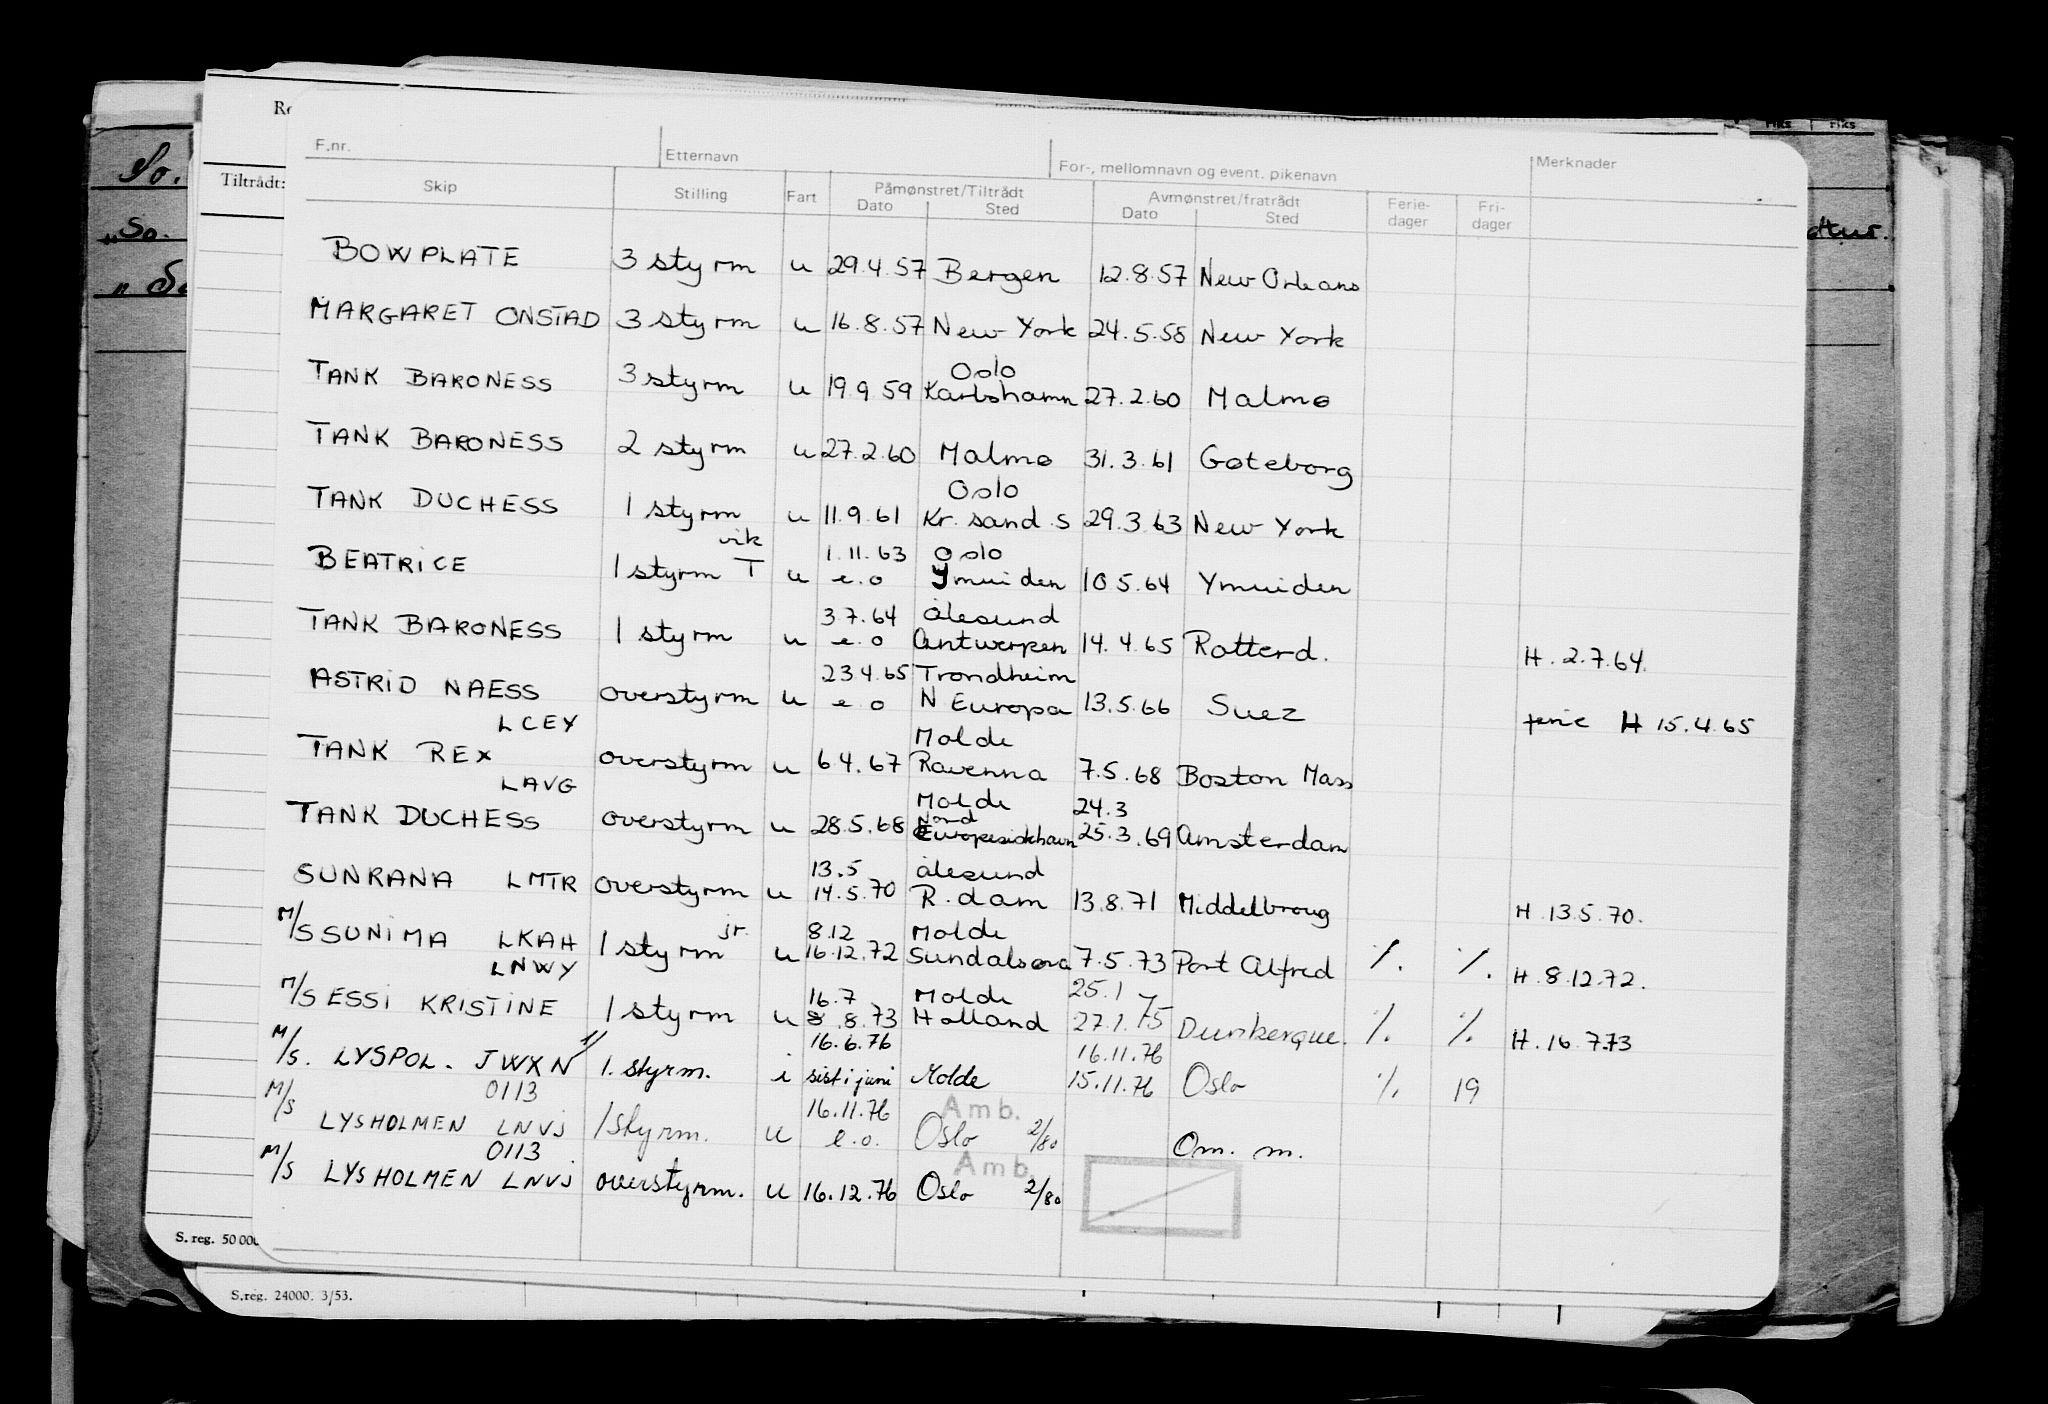 F.nr. Etternavn For-, mellomnavn og event. pikenavn Merknader
Skip Stilling Fart Påmønstret/Tiltrådt Dato Sted Avmønstret/fratrådt Dato Sted Ferie-dager Fri-dager
BOWPLATE 3 styrm u 29.4.57 Bergen 12.8.57 New Orleans
MARGARET ONSTAD 3 styrm u 16.8.57 New York 24.5.58 New York
Oslo
TANK BARONESS 3 styrm u 19.9 59 Karlshamn 27.2.60 Malmø
TANK BARONESS 2 styrm u 27.2.60 Malmø 31.3.61 Gøteborg
Oslo
TANK DUCHESS 1 styrm u 11.9.61 Kr. sand. S 29.3.63 New York
vik 1.11.63 Oslo
BEATRICE 1 styrm T u e.o Ymuiden 10 5.64 Ymuiden
3.7.64 Ålesund
TANK BARONESS 1 styrm u e.o Antwerpen 14.4.65 Rotterd. H. 2.7.64.
23.4.65 Trondheim
ASTRID NAESS overstyrm u e o N Europa 13.5.66 Suez H 15.4.65
LCEY Molde
TANK REX overstyrm u 6 4.67 Ravenna 7.5.68 Boston Mass
LAVG Molde 24.3
TANK DUCHESS overstyrm u 28.5.68 Nord Europeisk havn 25.3.69 Amsterdam
13.5 Ålesund
SUNRANA LMTR overstyrm u 14.5.70 R.dam 13.8.71 Middelbroug H 13.5.70.
jr. 8.12 Molde
M/S SUNIMA LKAH 1 styrm u 16.12.72 Sundalsøra 7.5.73 Port Alfred ⁒ ⁒ H 8.12.72.
LNWY 16.7 Molde 25.1
M/S ESSI KRISTINE 1 styrm u 8.8.73 Holland 27.1.75 Dunkerque. ⁒ ⁒ H. 16.7.73
16.6.76 16.11.76
M/S. LYSPOL. JWXN 1. styrm. i sist i juni Molde 15.11.76 Oslo ⁒ 19
0113 16.11.76 Amb.
M/S LYSHOLMEN LNVJ 1 styrm. u e.o. Oslo 2/80 Om. m.
0113 Amb.
M/S LYSHOLMEN LNVJ overstyrm. u 16.12.76 Oslo 2/80
Tiltrådt:
So.
"So.
S. reg. 50 000
S.reg. 24000. 3/53.